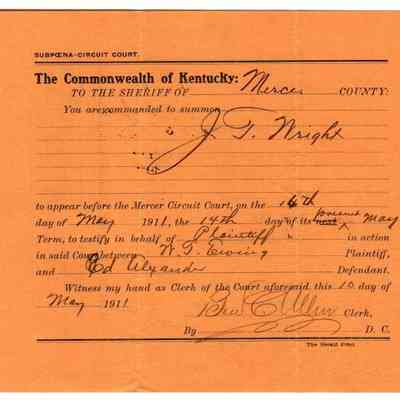 SUBPŒNA-CIRCUIT COURT.
The Commonwealth of Kentucky:
TO THE SHERIFF OF Mercer COUNTY:
You are commanded to summon
J. T. Wright
to appear before the Mercer Circuit Court, on the 14th
day of May 1911, the 14th day of its present May
Term, to testify in behalf of Plaintiff in action
in said Court between W. T. Ewing Plaintiff,
and Ed Alyxander Defendant.
Witness my hand as Clerk of the Court aforesaid this 10 day of
May 1911 Allin Clerk,
By D. C.
The Herald Print